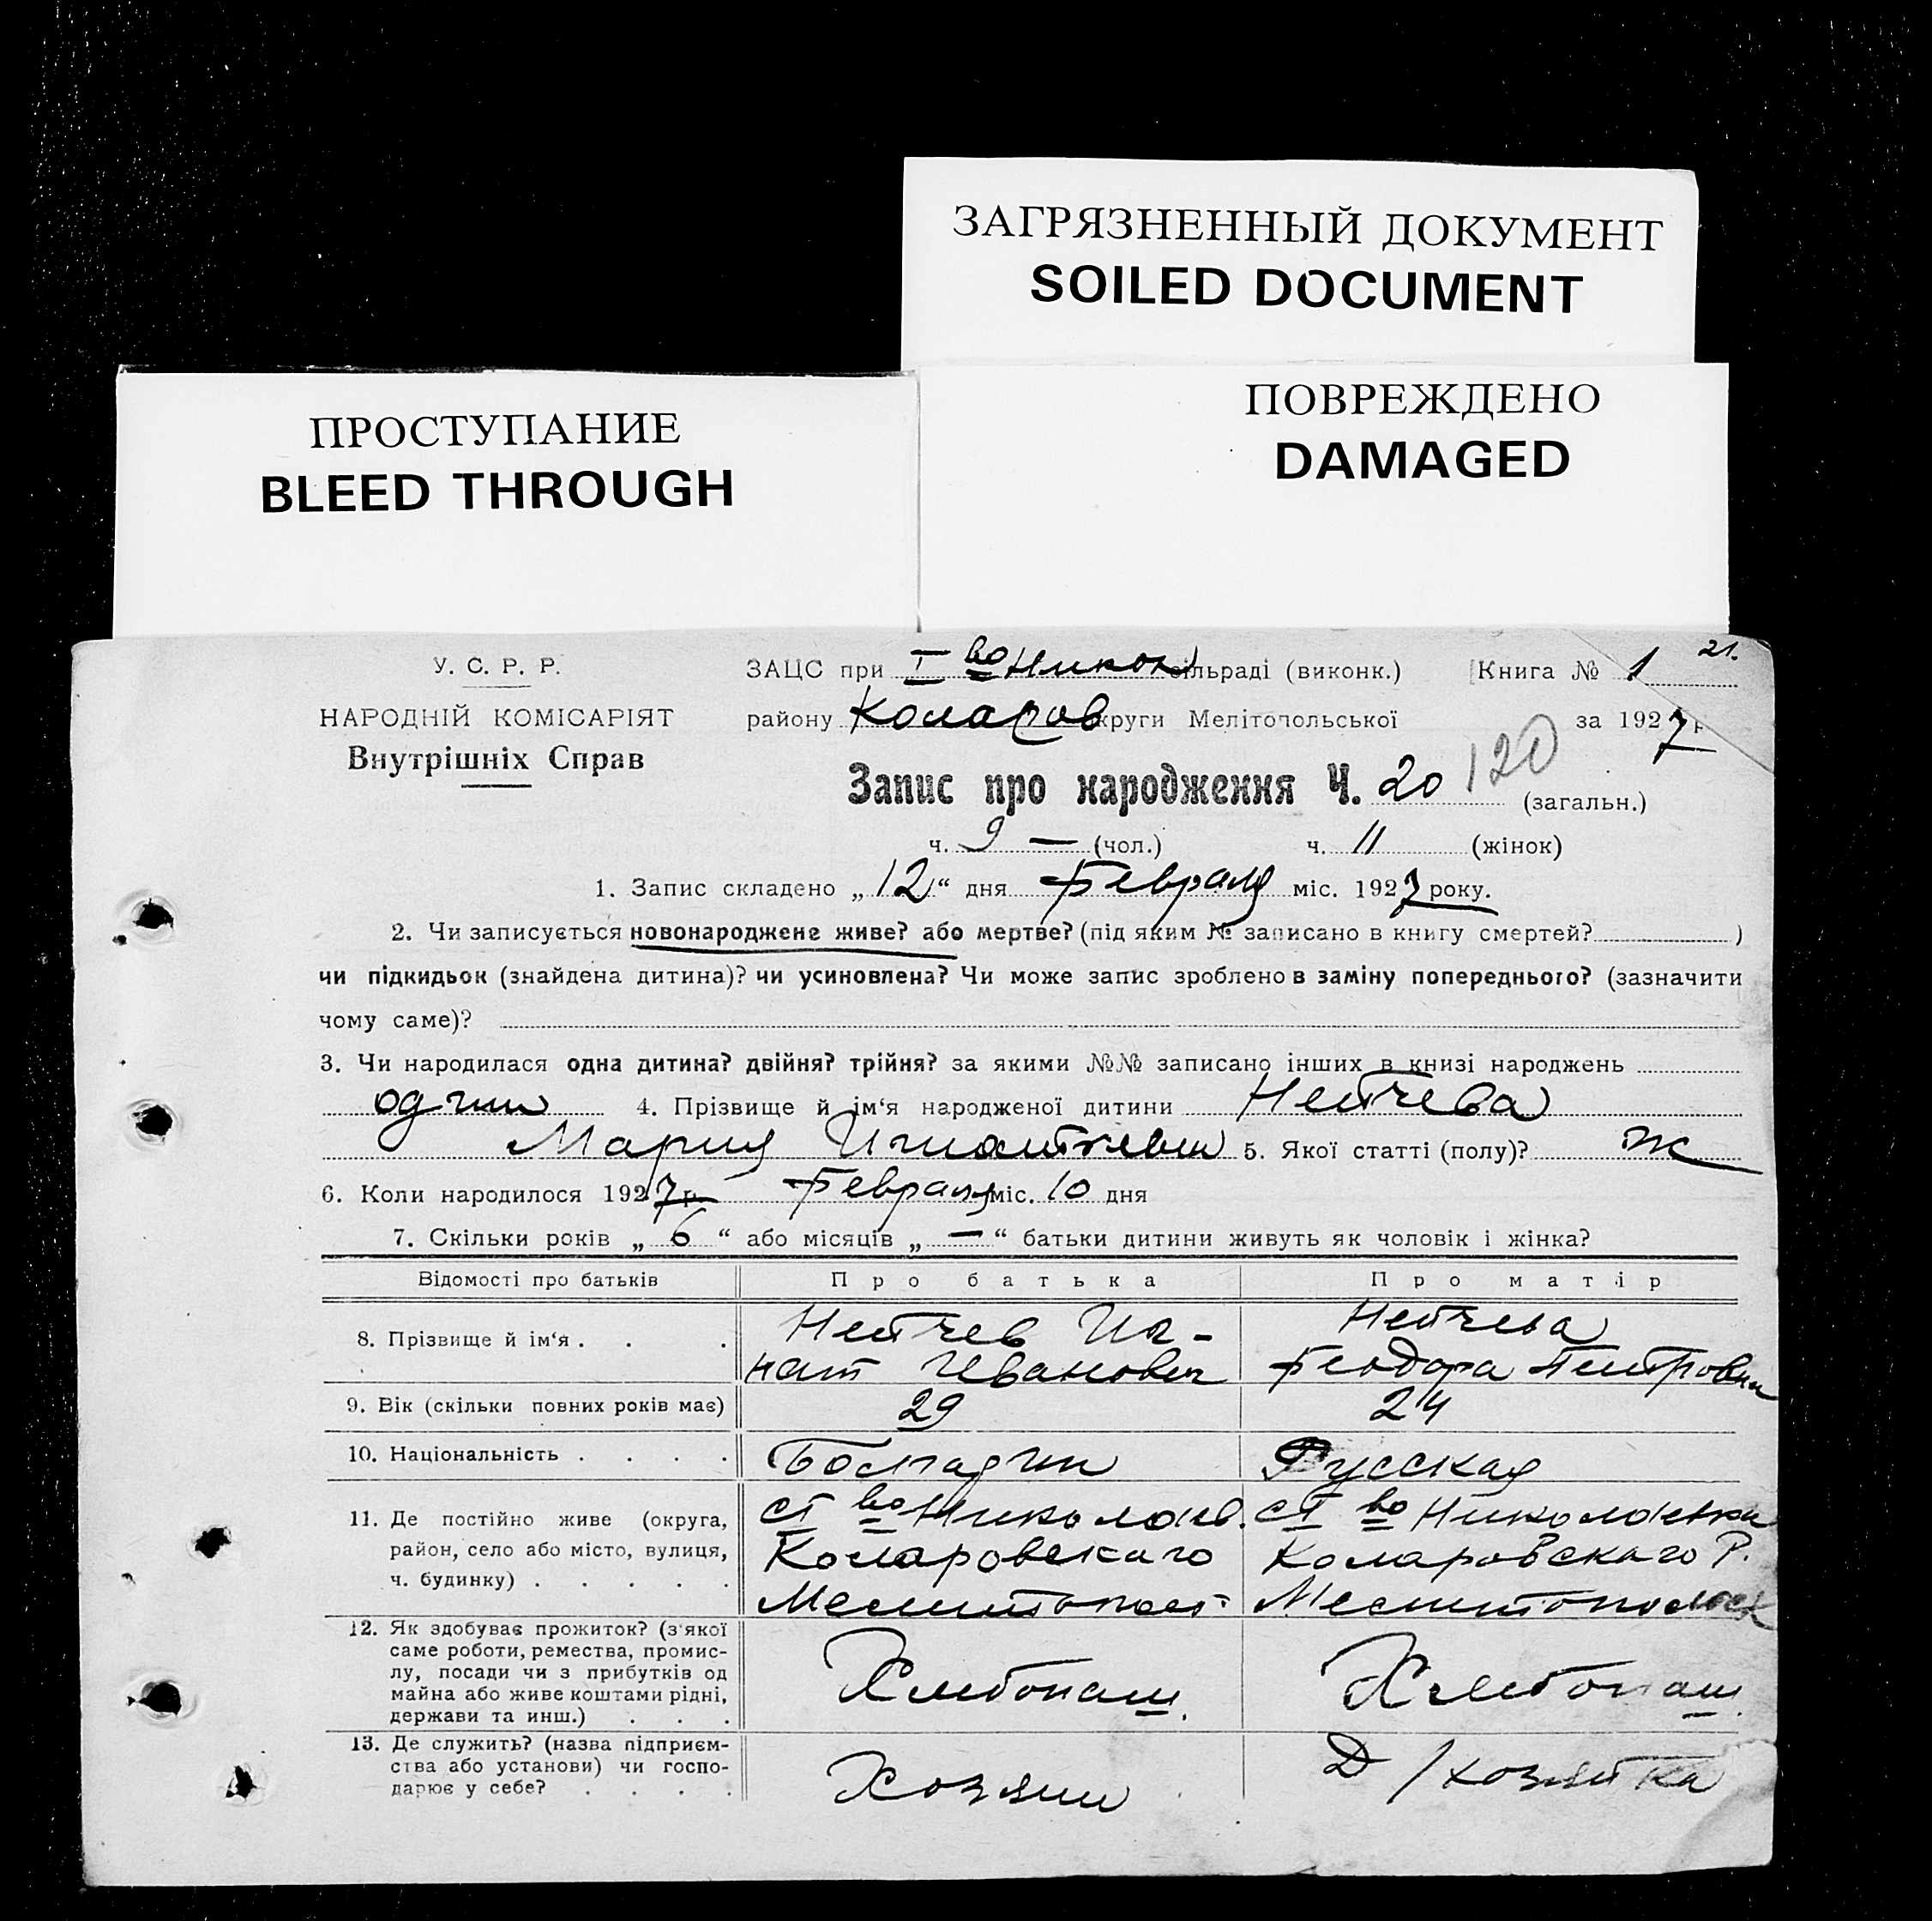 ЗАГРЯЗНЕННЫЙ ДОКУМЕНТ
SOILED DOCUMENT
ПРОСТУПАНИЕ
BLEED THROUGH
ПОВРЕЖДЕНО
DAMAGED
21.
У. С. Р. Р.
НАРОДНІЙ КОМІСАРІЯТ
Внутрішніх Справ
ЗАЦС при I во Никол сільраді (виконк.) Книга № 1
району Коларов округи Мелітопольської за 1927 р
Запис про народження Ч. 20 120 (загальн.)
ч. 9 — (чол.) ч. 11 (жінок)
1. Запис складено „12“ дня Февраля міс. 1927 року.
2. Чи записується новонароджене живе? або мертве? (під яким № записано в книгу смертей? )
чи підкидьок (знайдена дитина)? чи усиновлена? Чи може запис зроблено в заміну попереднього? (зазначити
чому саме)?
3. Чи народилася одна дитина? двійня? трійня? за якими №№ записано інших в книзі народжень
один 4. Прізвище й ім‘я народженої дитини Нейчева
Мария Игнатьевн 5. Якої статті (полу)? Ж
6. Коли народилося 1927 р. Февраля міс. 10 дня
7. Скільки років „ 6 “ або місяців „ — “ батьки дитини живуть як чоловік і жінка?
Відомості про батьків Про батька Про матір
8. Прізвище й ім‘я . . . Нейчев Иг- Нейчева
нат Иванович Феодора Петровн
9. Вік (скільки повних років має) 29 24
10. Національність . . . . Болгарин Русская
11. Де постійно живе (округа, район, село або місто, вулиця, ч. будинку) . . . . .
сI во Николаев. сI во Николаевка
Коларовскаго Коларовскаго Р.
Мелитопол- Мелитопольск
12. Як здобуває прожиток? (з якої
саме роботи, ремества, промис-
лу, посади чи з прибутків од
майна або живе коштами рідні,
держави та инш.) . . .
Хлебопаш. Хлебопаш.
13. Де служить? (назва підприєм-
ства або установи) чи госпо-
дарює у себе? . . . .
Хозяин Д/хозяйка